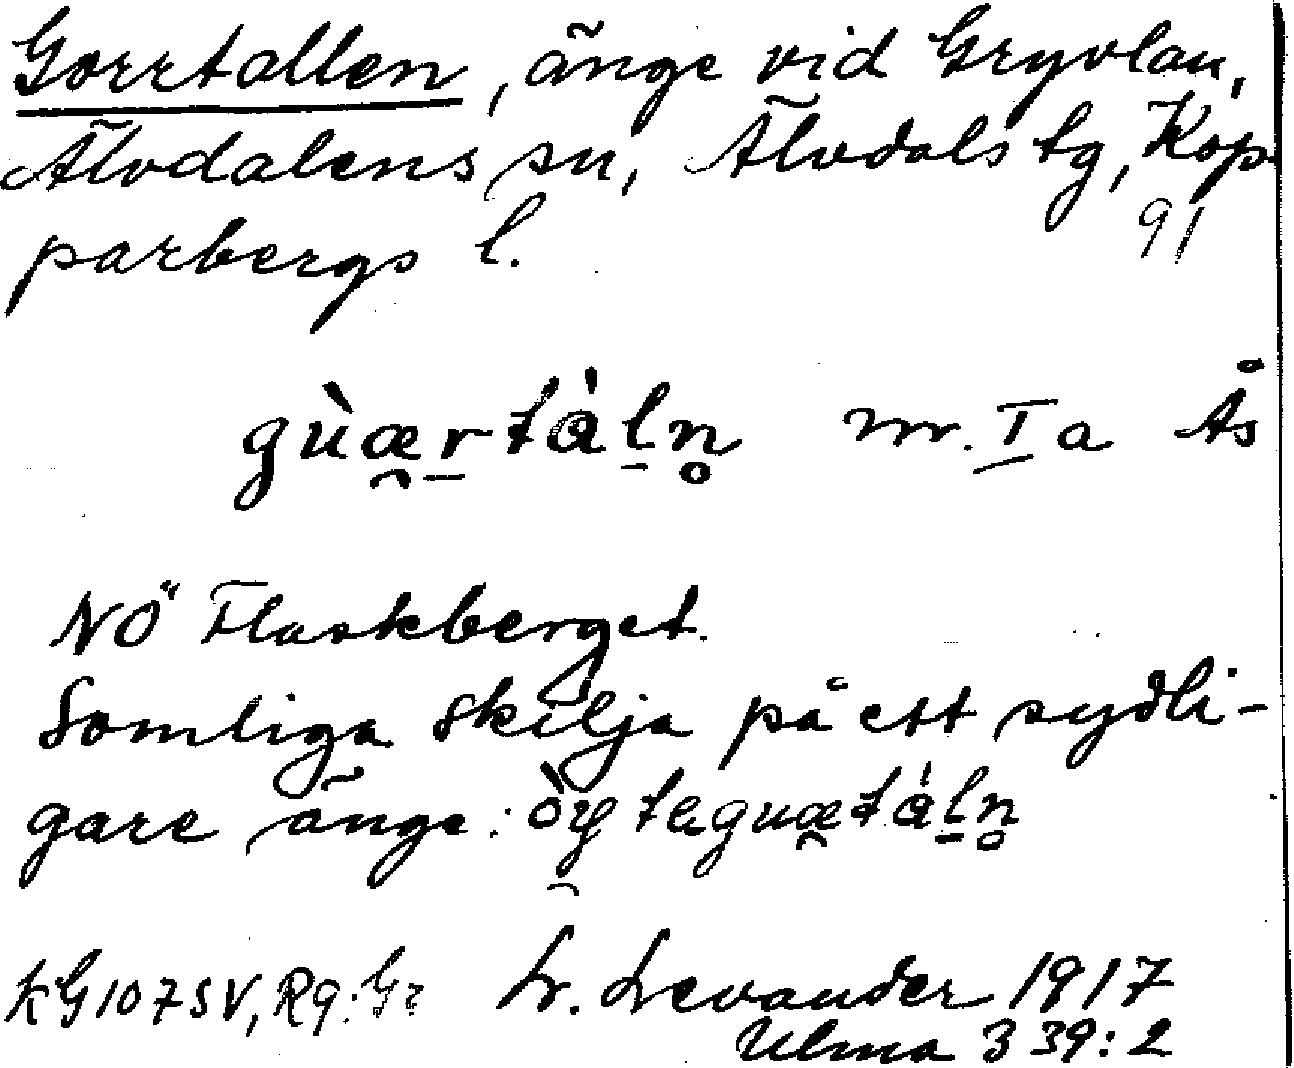 Gorrtallen, änge vid Gryvlan,
Älvdalens sn, Älvdals tg, Kop-
parbergs l. 91
gùæ̯rtàln̥ m. Ia Ås
NÖ Flaskberget.
Somliga skilja på ett sydli-
gare änge: òy̯taguæ̯tàln̥
KG 107 SV, Rq. G2 L. Levander 1917
Ulma 339:2